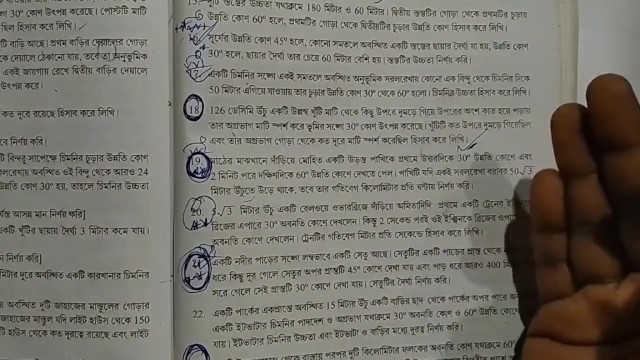 30° কোণ উৎপন্ন করেছে। পোস্টটি মাটি
ছিল হিসাব করে লিখি।
টি বাড়ি আছে। প্রথম বাড়ির দেয়ালের গোড়া
উৎপন্ন করে।
কত দূরে রয়েছে হিসাব করে লিখি।
নির্ণয় করি।
টি বিন্দুর সাপেক্ষে চিমনির চূড়ার উন্নতি কোণ
সরলরেখায় অবস্থিত ওই বিন্দু থেকে আরও 24
উন্নতি কোণ 30° হয়, তাহলে চিমনির উচ্চতা
আসন্ন মান নির্ণয় করি]
একটি খুঁটির ছায়ার দৈর্ঘ্য 3 মিটার কমে যায়।
নির্ণয় করি]
মিটার দূরে অবস্থিত একটি কারখানার চিমনির
অবস্থিত দুটি জাহাজের মাস্তুলের গোড়ার
জাহাজের মাস্তুল যদি লাইট হাউস থেকে 150
টি হাউস থেকে কত দূরত্বে রয়েছে এবং লাইট
15. দুটি স্তম্ভের উচ্চতা যথাক্রমে 180 মিটার ও 60 মিটার। দ্বিতীয় স্তম্ভটির গোড়া থেকে প্রথমটির চূড়ার
উন্নতি কোণ 60° হলে, প্রথমটির গোড়া থেকে দ্বিতীয়টির চূড়ার উন্নতি কোণ হিসাব করে লিখি।
সূর্যের উন্নতি কোণ 45° হলে, কোনো সমতলে অবস্থিত একটি স্তম্ভের ছায়ার দৈর্ঘ্য যা হয়, উন্নতি কোণ
30° হলে, ছায়ার দৈর্ঘ্য তার চেয়ে 60 মিটার বেশি হয়। স্তম্ভটির উচ্চতা নির্ণয় করি।
17. একটি চিমনির সঙ্গে একই সমতলে অবস্থিত অনুভূমিক সরলরেখায় কোনো এক বিন্দু থেকে চিমনির দিকে
50 মিটার এগিয়ে যাওয়ায় তার চূড়ার উন্নতি কোণ 30° থেকে 60° হলো। চিমনির উচ্চতা হিসাব করে লিখি।
18. 126 ডেসিমি উঁচু একটি উল্লম্ব খুঁটি মাটি থেকে কিছু উপরে দুমড়ে গিয়ে উপরের অংশ কাত হয়ে পড়ায়
তার অগ্রভাগ মাটি স্পর্শ করে ভূমির সঙ্গে 30° কোণ উৎপন্ন করেছে। খুঁটিটি কত উপরে দুমড়ে গিয়েছিল
এবং তার অগ্রভাগ গোড়া থেকে কত দূরে মাটি স্পর্শ করেছিল হিসাব করে লিখি।
19. মাঠের মাঝখানে দাঁড়িয়ে মোহিত একটি উড়ন্ত পাখিকে প্রথমে উত্তরদিকে 30° উন্নতি কোণে এবং
2 মিনিট পরে দক্ষিণদিকে 60° উন্নতি কোণে দেখতে পেল। পাখিটি যদি একই সরলরেখা বরাবর 50√3
মিটার উঁচুতে উড়ে থাকে, তবে তার গতিবেগ কিলোমিটার প্রতি ঘণ্টায় নির্ণয় করি।
20. 5√3 মিটার উঁচু একটি রেলওয়ে ওভারব্রিজে দাঁড়িয়ে অমিতাদিদি প্রথমে একটি ট্রেনের
ব্রিজের এপারে 30° অবনতি কোণে দেখলেন। কিন্তু 2 সেকেন্ড পরই ওই ইঞ্জিনকে ব্রিজের
অবনতি কোণে দেখলেন। ট্রেনটির গতিবেগ মিটার প্রতি সেকেন্ডে হিসাব করে লিখি।
একটি নদীর পাড়ের সঙ্গে লম্বভাবে একটি সেতু আছে। সেতুটির একটি পাড়ের প্রান্ত থেকে
ধরে কিছু দূর গেলে সেতুর অপর প্রান্তটি 45° কোণে দেখা যায় এবং পাড় ধরে আরও 400
সরে গেলে সেই প্রান্তটি 30° কোণে দেখা যায়। সেতুটির দৈর্ঘ্য নির্ণয় করি।
22. একটি পার্কের একপ্রান্তে অবস্থিত 15 মিটার উঁচু একটি বাড়ির ছাদ থেকে পার্কের অপর পারে
একটি ইটভাটার চিমনির পাদদেশ ও অগ্রভাগ যথাক্রমে 30° অবনতি কোণ ও 60° উন্নতি কোণে
যায়। ইটভাটার চিমনির উচ্চতা এবং ইটভাটা ও বাড়ির মধ্যে দূরত্ব নির্ণয় করি।
থেকে রাস্তায় পরপর দুটি কিলোমিটার ফলকের অবনতি কোণ যথাক্রমে 60°